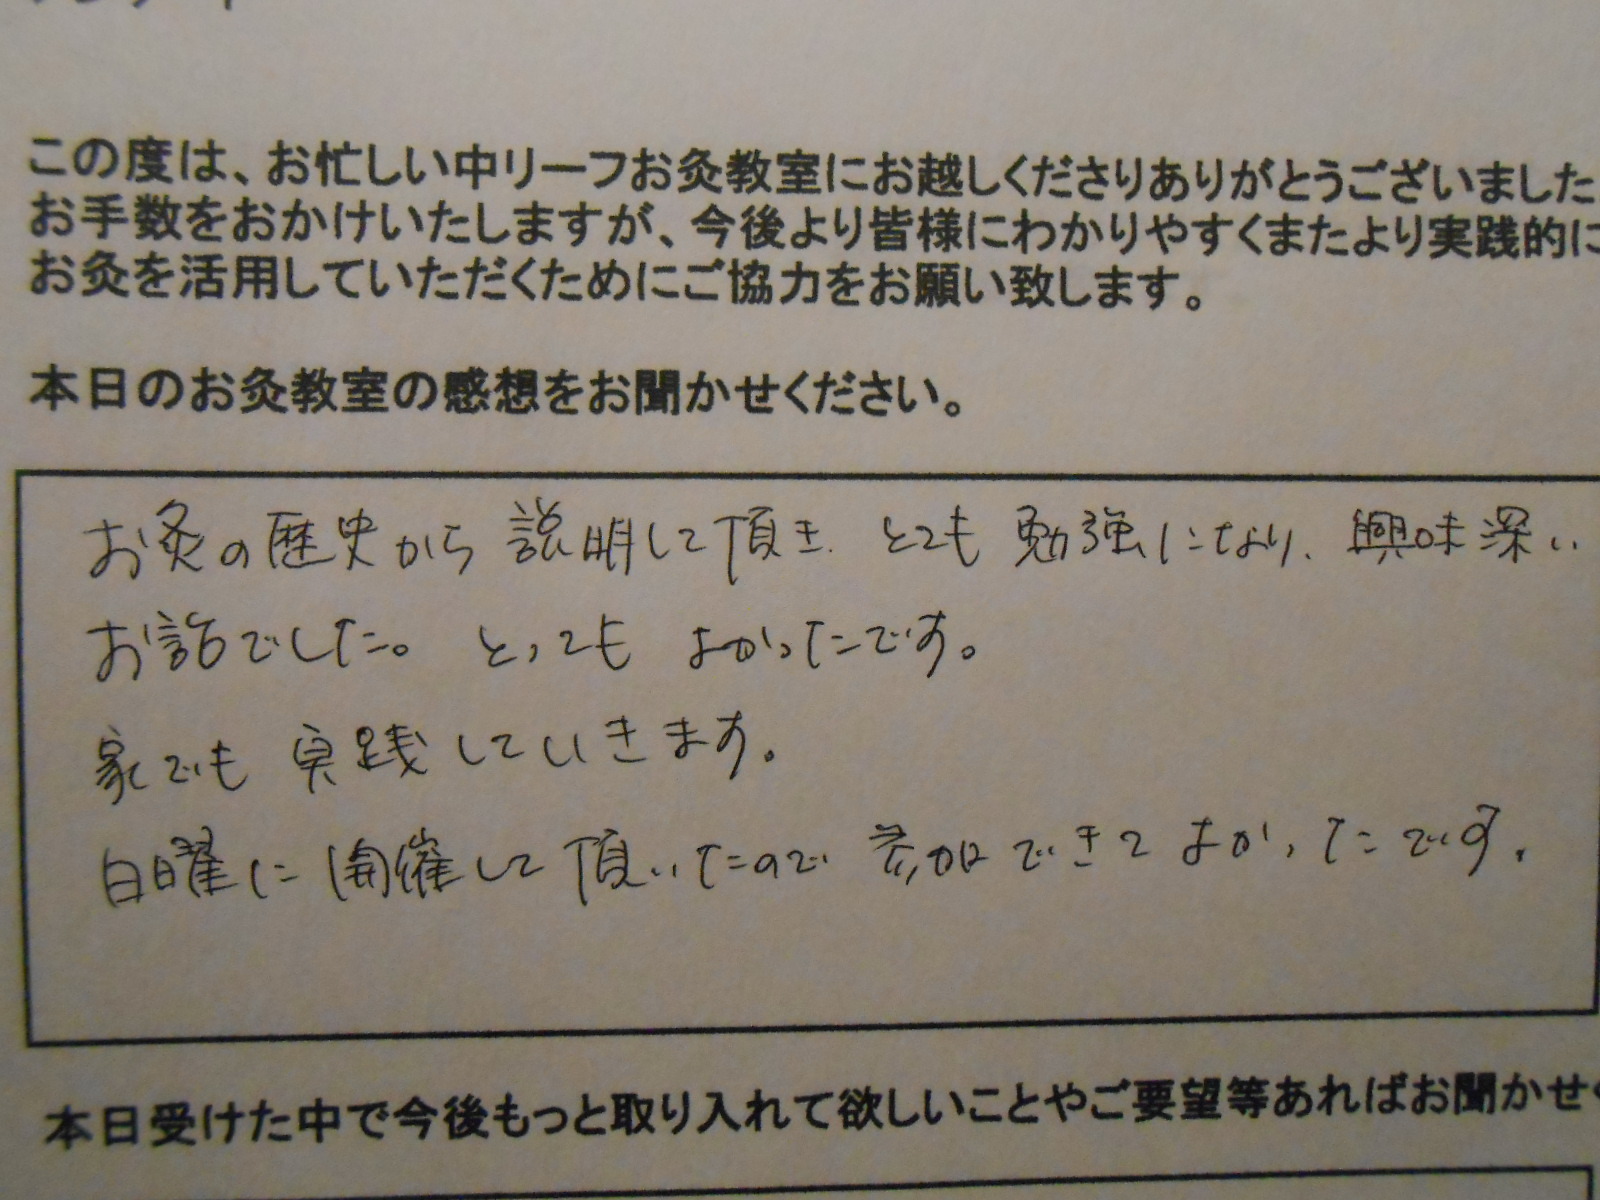 この度は、お忙しい中リーフお灸教室にお越しくださりありがとうございました
お手数をおかけいたしますが、今後より皆様にわかりやすくまたより実践的に
お灸を活用していただくためにご協力をお願い致します。
本日のお灸教室の感想をお聞かせください。
お灸の歴史から説明して頂き、とても勉強になり、興味深い
お話でした。とってもよかったです。
家でも実践していきます。
日曜に開催して頂いたので参加できてよかったです。
本日受けた中で今後もっと取り入れて欲しいことやご要望等あればお聞かせ